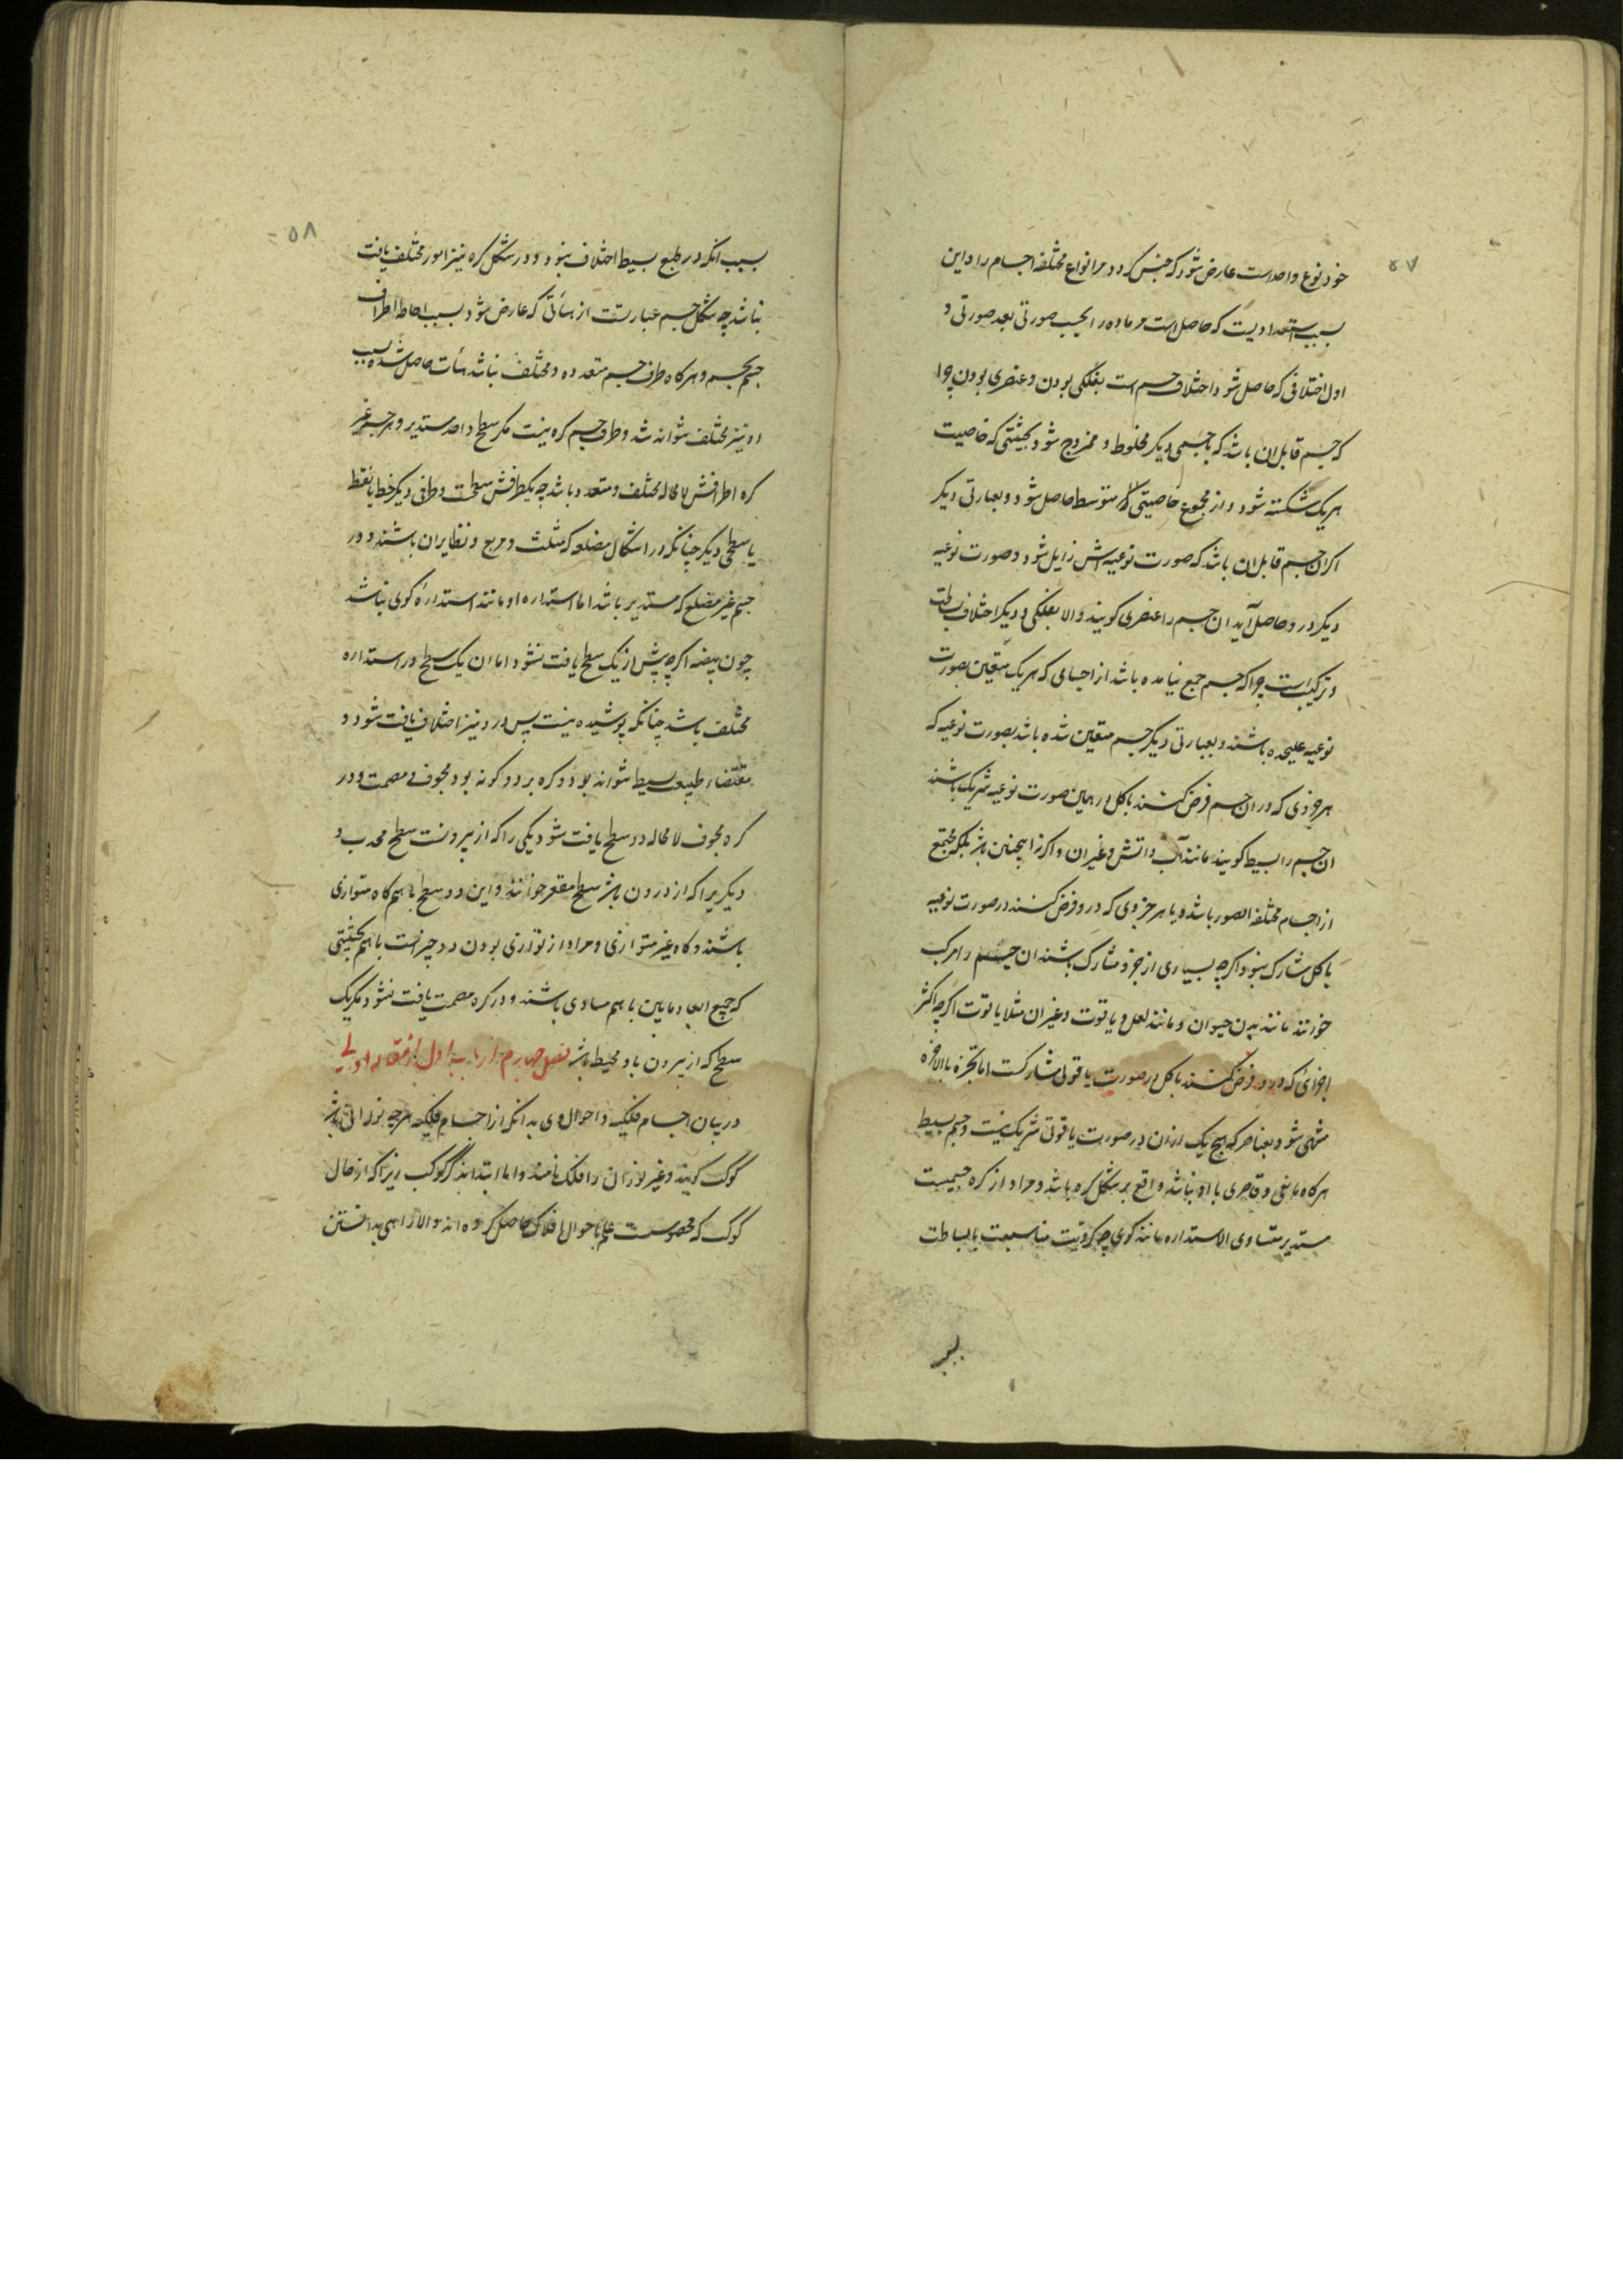 ۵۷
خود نوع واحدست عارض شود که جنس کردد مر انواع مختلفه اجسام را و این
بسبب استعدادیست که حاصل است مر ماده را بحسب صورتی بعد صورتی و
اول اختلافی که حاصل شود اختلاف جسم است بفلکی بودن و عنصری بودن چرا
که جسم قابل ان باشد که با جسمی دیکر مخلوط و ممزوج شود بحیثیتی که خاصیت
هر یک شکسته شود و از مجموع خاصیتی متوسط حاصل شود و بعبارتی دیکر
اکر ان جسم قابل ان باشد که صورت نوعیه اش زایل شود و صورت نوعیه
دیکر در و حاصل آید ان جسم را عنصری کویند و الا بفلکی و دیکر اختلاف بساطت
و ترکیب است چرا که جسم جمع نیامده باشد از اجسامی که هر یک متعین بصورت
نوعیه علیحده باشند و بعبارتی دیکر جسم متعین شده باشد بصورت نوعیه که
هر جزوی که در ان جسم فرض کنند با کل در همان صورت نوعیه شریک باشند
ان جسم را بسیط کویند مانند آب و اتش و غیر ان و اکر نه اینچنین باشد بلکه مجتمع
از اجسام مختلفه الصور باشد و یا هر جزوی که در و فرض کنند در صورت نوعیه
با کل مشارک نبود اکر چه بسیاری از جزو مشارک باشند ان جسم را مرکب
خوانند مانند بدن حیوان و مانند لعل و یاقوت و غیر ان مثلا یاقوت اکر چه اکثر
اجزائی که در و فرض کنند با کل در صورت یاقوتی مشارکست اما تجزیه بالاخره
منتهی شود بعناصر که هیچ یک از ان در صورت یاقوتی شریک نیست و جسم بسیط
هر کاه مانعی و قاصری با او نباشد واقع بر شکل کره باشد و مراد از کره جسمیست
مستدیر متساوی الاستداره مانند کوی چه کرویت مناسبت با بساطت
بسبب
۵۸
بسبب انکه در طبع بسیط اختلاف نبود و در شکل کره نیز امور مختلف یافت
نباشد چه شکل جسم عبارتست از هیأتی که عارض شود بسبب احاطه اطراف
جسم بجسم و هر کاه طرف جسم متعدده و مختلف نباشد هیأت حاصل شده بسبب
او نیز مختلف نتواند شد و طرف جسم کره نیست مکر سطح واحد مستدیر و هر جسم غیر
کره اطرافش لامحاله مختلف و متعدد باشد چه یکطرفش سطحست و طرفی دیکر خط یا نقطه
یا سطحی دیکر چنانکه در اشکال مضلعه که مثلث و مربع و نظایر ان باشند و در
جسم غیر مضلع که مستدیر باشد اما استداره او مانند استداره کوی نباشد
چون بیضه اکر چه بیش از یک سطح یافت نشود اما ان یک سطح در استداره
مختلف باشد چنانکه پوشیده نیست پس در و نیز اختلاف یافت شود و
مقتضاء طبیعت بسیط نتواند بود و کره بر دو کونه بود مجوف و مصمت و در
کره مجوف لامحاله دو سطح یافت شود یکی را که از بیرونست سطح محدب و
دیکریرا که از درون باشد سطح مقعر خوانند و این دو سطح با هم کاه متوازی
باشند و کاه غیر متوازی و مراد از توازی بودن دو چیزست با هم بحیثیتی
که جمیع ابعاد مابین با هم مساوی باشند و در کره مصمت یافت نشود مکر یک
سطح که از بیرون باو محیط باشد فصل چهارم از باب اول از مقاله اولی
در بیان اجسام فلکیه و احوال وی بدانکه از اجسام فلکیه هر چه نورانی باشد
کوکب کویند و غیر نوران را فلک نامند و اما ابتدا بذکر کوکب زیرا که از حال
کوکب که محسوست علم باحوال افلاک حاصل کرده اند و الا راهی بدانستن